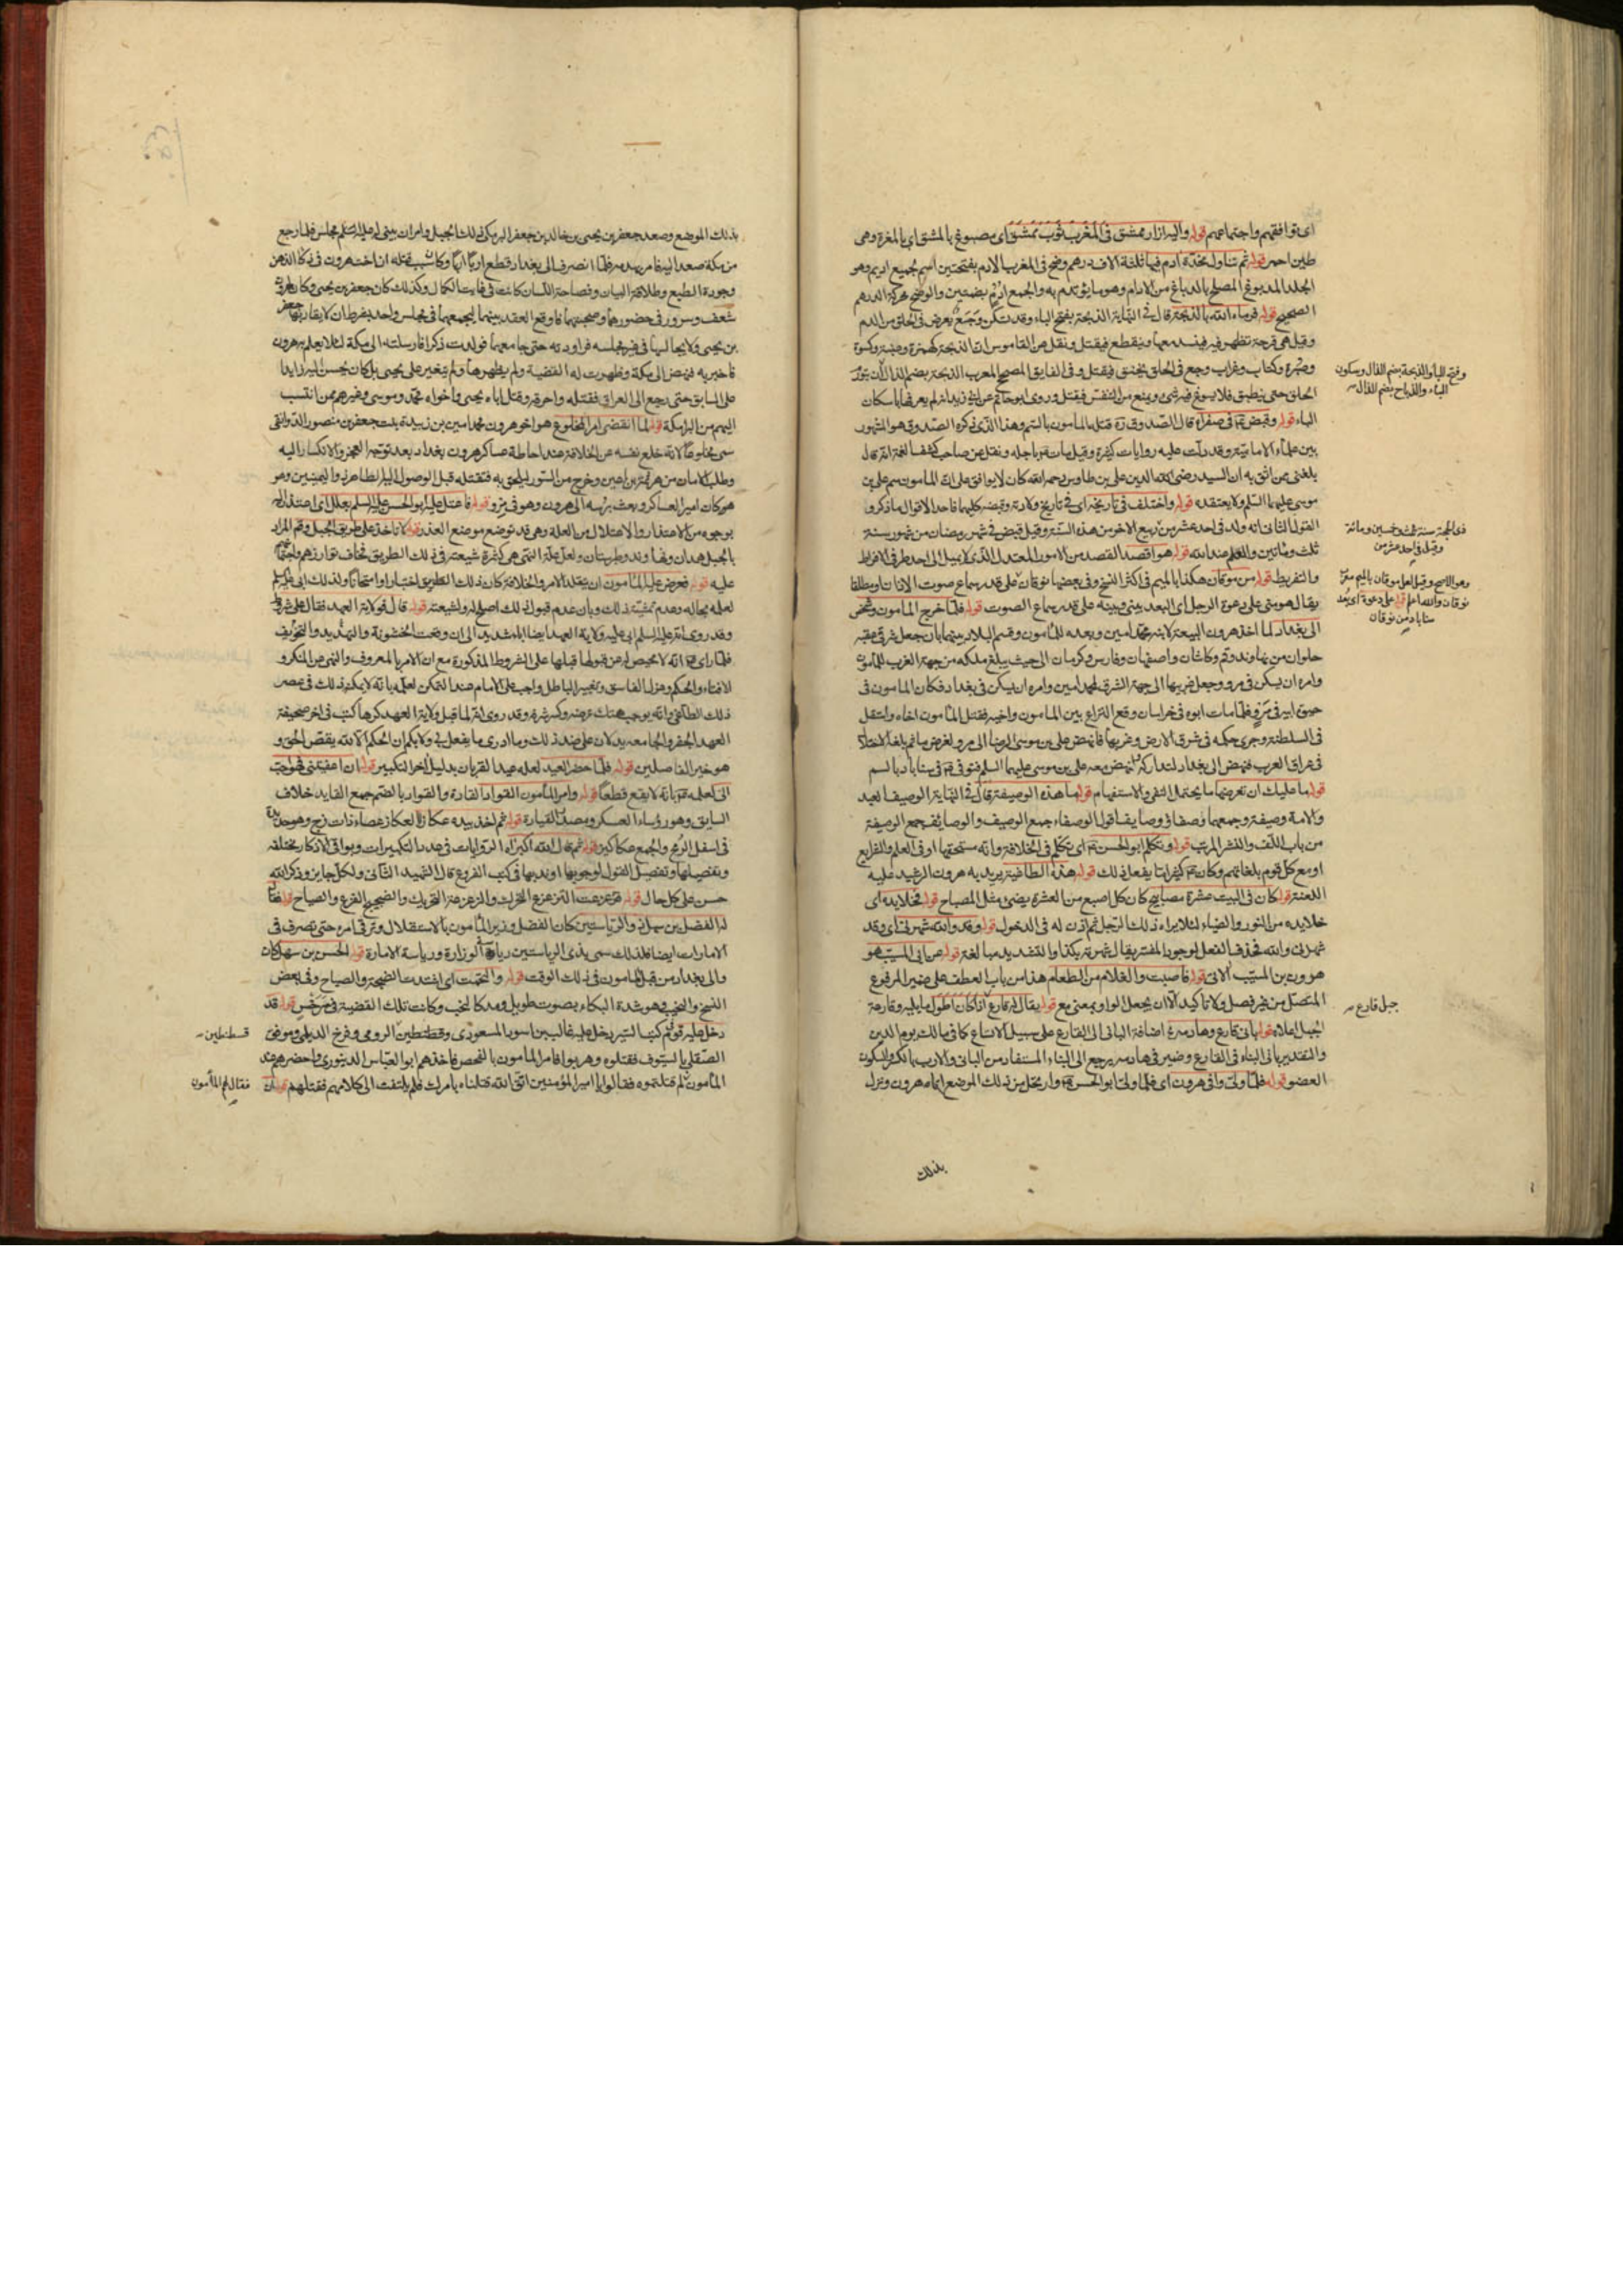 اى توافقهم واجتماعهم قوله واليه ازار ممشق فى المغرب ثوب ممشق اى مصبوغ بالمشق اى بالمغرة وهى
طين احمر قوله ثم تناول مخدة ادم فيها ثلثة الاف درهم وضح فى المغرب الادم بفتحتين اسم لجميع اديم وهو
الجلد المدبوغ المصلح بالدباغ من الادام وهو ما يؤتدم به والجمع ادم بضمتين والوضح محركة الدرهم
الصحيح قوله فرماه الله بالذبحة قال فى النهاية الذبحة بفتح الباء وقد تسكن وجع يعرض فى الحلق من الدم
وقيل هى قرحة تظهر فيه فينسد معها وينقطع فيقتل ونقل عن القاموس ان الذبحة كهمزة وعنبة وكسرة
وصبرة وكتاب وغراب وجع فى الحلق يخنق فيقتل وفى الفايق المصحح المعرب الذبحة بضم الذال ان يتورم
الحلق حتى ينطبق فلا يسوغ فيه شئ ويمنع من النفس فيقتل وروى ابو حاتم عن ابى زيد انه لم يعرفها باسكان
الباء قوله وقبض ع فى صفر اه قال الصدوق ره قتله المامون بالسم وهذا الذى ذكره الصدوق هو المشهور
بين علماء الامامية وقد دلت عليه روايات كثيرة وقيل مات ع باجله ونقل عن صاحب كشف الغمة انه قال
بلغنى ممن اثق به ان السيد رضى الدين على بن طاوس رحمه الله كان لا يوافق على ان المامون سم على بن
موسى عليهما السلم ولا يعتقده قوله واختلف فى تاريخه اى فى تاريخ ولادته وقبضه كليهما فاحد الاقوال ما ذكر و
القول الثانى انه ولد فى احد عشر من ربيع الاخر من هذه السنة وقيل قبض فى شهر رمضان من شهور سنة
ثلث ومائتين والعلم عند الله قوله هو اقصد القصد من الامور المعتدل الذى لا يميل الى احد طرفى الافراط
والتفريط قوله من موقان هكذا بالميم فى اكثر النسخ وفى بعضها نوقان على قدر سماع صوت الاذان او مطلقا
يقال هو منى على دعوة الرجل اى البعد بينى وبينه على قدر سماع الصوت قوله فلما خرج المامون وشخص
الى بغداد لما اخذ هرون البيعة لابنه محمد امين وبعده للمامون وقسم البلاد بينهما بان جعل شرقى عقبه
حلوان من نهاوند وقم وكاشان واصفهان وفارس وكرمان الى حيث يبلغ ملكه من جهة الغرب للمامون
وامره ان يسكن فى مرو وجعل غربيها الى جهة الشرق لمحمد امين وامره ان يسكن فى بغداد فكان المامون فى
حيوة ابيه فى مرو فلما مات ابوه فى خراسان وقع النزاع بين المامون واخيه فقتل المامون اخاه واستقل
فى السلطنة وجرى حكمه فى شرق الارض وغربها فانهض على بن موسى الرضا الى مرو لغرض ما ثم بلغه الاختلال
فى عراق العرب فنهض الى بغداد لتداركه فانهض معه على بن موسى عليهما السلم فتوفى ع فى سناباد بالسم
قوله ما عليك ان تعرضها ما يحتمل النفى والاستفهام قوله ما هذه الوصيفة قال فى النهاية الوصيف العبد
والامة وصيفة وجمعهما وصفاء ووصايف اقول الوصفاء جمع الوصيف والوصايف جمع الوصيفة
من باب اللف والنشر المرتب قوله وتكلم ابو الحسن ع اى تكلم فى الخلافة وانه مستحقها او فى العلم والشرايع
او مع كل قوم بلغاتهم وكان ع كثيرا ما يفعل ذلك قوله هذا الطاغية يريد به هرون الرشيد عليه
اللعنة قوله كان فى البيت عشرة مصابيح كان كل اصبع من العشرة يضئ مثل المصباح قوله فخلا يده اى
خلا يده من النور والضياء لئلا يراه ذلك الرجل ثم اذن له فى الدخول قوله وقد والله شهرنى اى وقد
شهرنى والله فحذف الفعل لوجود المفسر يقال شهرته بكذا والتشديد مبالغة قوله عن ابى المسيب هو
هرون بن المسيب الاتى قوله فاصبت والغلام من الطعام هذا من باب العطف على ضمير المرفوع
المتصل من غير فصل ولا تاكيد الا ان يجعل الواو بمعنى مع قوله يقال له فارع اذا كان اطول ما يليه وقارعة
الجبل اعلاه قوله بانى فارع وهادمه اضافة البانى الى الفارع على سبيل الاتساع كما فى مالك يوم الدين
والتقدير بانى البناء فى الفارع وضمير فى هادمه يرجع الى البناء المستفاد من البانى والارب بالكسر والسكون
العضو قوله فلما ولى وافى هرون اى فلما ولى ابو الحسن ع وارتحل من ذلك الموضع اتاه هرون ونزل
بذلك
وفتح الباء والذبحة بضم الذال وسكون
الباء والذباح بضم الذال
ذى الحجة سنة ثلث وخمسين ومائة
وقيل فى احد عشر من
وهو الاصح وقيل لعل موقان بالميم معرب
نوقان والله اعلم قوله على دعوة اى بعد
سناباد من نوقان
جبل فارع
بذلك الموضع وصعد جعفر بن يحيى بن خالد بن جعفر البرمكى ذلك الجبل وامر ان يبنى له عليه السلم مجلس فلما رجع
من مكة صعد اليه فامر بهدمه فلما انصرف الى بغداد قطع اربا اربا وكان سبب قتله ان اخت هرون فى ذكاء الذهن
وجودة الطبع وطلاقة البيان وفصاحة اللسان كانت فى غايت الكمال وكذلك كان جعفر بن يحيى وكان لهرون
شعف وسرور فى حضورهما وصحبتهما فاوقع العقد بينهما ليجمعهما فى مجلس واحد بشرط ان لا يقاربها جعفر
بن يحيى ولا يجالسها فى غير مجلسه فراودته حتى جامعها فولدت ذكرا فارسلته الى مكة لئلا يعلم به هرون
فاخبر به فنهض الى مكة وظهرت له القضية ولم يظهرها ولم يتغير على يحيى بل كان يحسن اليه زايدا
على السابق حتى رجع الى العراق فقتله واحرقه وقتل اباه يحيى واخواه محمد وموسى وغيرهم ممن انتسب
اليهم من البرامكة قوله لما انقضى امر المخلوع هو اخو هرون محمد امين بن زبيدة بنت جعفر بن منصور الدوانقى
سمى مخلوعا لانه خلع نفسه عن الخلافة عند احاطة عساكر هرون بغداد بعد توجه العجز والانكسار اليه
وطلب الامان من هرثمة بن اعين وخرج من السور ليلحق به فقتله قبل الوصول اليه طاهر ذو اليمينين وهو
هو كان امير العساكر وبعث براسه الى هرون وهو فى مرو قوله فاعتل عليه ابو الحسن عليه السلم بعلل اى اعتذر اليه
بوجوه من الاعتذار والاعتلال من العلة وهى قد توضع موضع العذر قوله لا تاخذ على طريق الجبل وقم المراد
بالجبل همدان ونهاوند وطبرستان ولعل علة النهى هى كثرة شيعته فى ذلك الطريق فخاف توازرهم واجتماعهم
عليه قوله فعرض عليه المامون ان يتقلد الامر والخلافة كان ذلك التعريض اختبارا وامتحانا ولذلك ابى عليه السلم
لعلمه بحاله وعدم تمشيه ذلك وبان عدم قبول ذلك اصلح له ولشيعته قوله قال فولاية العهد فقال على شروط
وقد روى انه عليه السلم ابى عليه ولاية العهد ايضا اباء شديدا الى ان وقعت الخشونة والتهديد والتخويف
فلما راى ع انه لا محيص له عن قبولها قبلها على الشروط المذكورة مع ان الامر بالمعروف والنهى عن المنكر و
الافتاء والحكم وعزل الفاسق وتغيير الباطل واجب على الامام عند التمكن لعلمه بانه لا يمكنه ذلك فى عصر
ذلك الطاغى وانه يوجب هتك عرضه وكسر شره وقد روى انه لما قبل ولاية العهد كرها كتب فى اخر صحيفة
العهد الجفر والجامعة يدلان على ضد ذلك وما ادرى ما يفعل بى ولا بكم ان الحكم الا لله يقص الحق و
هو خير الفاصلين قوله فلما حضر العيد لعله عيد القربان بدليل اخر التكبير قوله ان اعفيتنى فهو احب
الى لعلمه ع بانه لا يقع قطعا قوله وامر المامون القواد القادة والقواد بالضم جمع القايد خلاف
السابق وهو رؤساء العسكر ومصدره القيادة قوله ثم اخذ بيده عكازا العكاز عصاء ذات زج وهو حديدة
فى اسفل الرمح والجمع عكاكيز قوله ثم قال الله اكبر اه الروايات فى عدد التكبيرات وبواقى الاذكار مختلفة
وتفصيلها وتفصيل القول لوجوبها او ندبها فى كتب الفروع قال الشهيد الثانى ولكل جايز وذكر الله
حسن على كل حال قوله تزعزعت التزعزع التحرك والزعزعة التحريك والضجيج الفزع والصياح قوله فقال
له الفضل بن سهل ذو الرياستين كان الفضل وزير المامون بالاستقلال وترقى امره حتى تصرف فى
الامارات ايضا فلذلك سمى بذى الرياستين رياسة الوزارة ورياسة الامارة قوله الحسن بن سهل كان
والى بغداد من قبل المامون فى ذلك الوقت قوله والتحمت اى اشتدت الضجة والصياح وفى بعض
النسخ والنحيب هو شدة البكاء بصوت طويل ومد كالنحب وكانت تلك القضية فى سرخس قوله قد
دخل عليه قوم كتب السير دخل عليه غالب بن اسود المسعودى وقسطنطين الرومى وفرخ الديلمى وموفق
الصقلبى بالسيوف فقتلوه وهربوا فامر المامون بالفحص فاخذهم ابو العباس الدينورى واحضرهم عند
المامون لم قتلتموه فقالوا يا امير المؤمنين اتق الله قتلناه بامرك فلم يلتفت الى كلامهم فقتلهم قوله ان
قسطنطين
فقال لهم المأمون